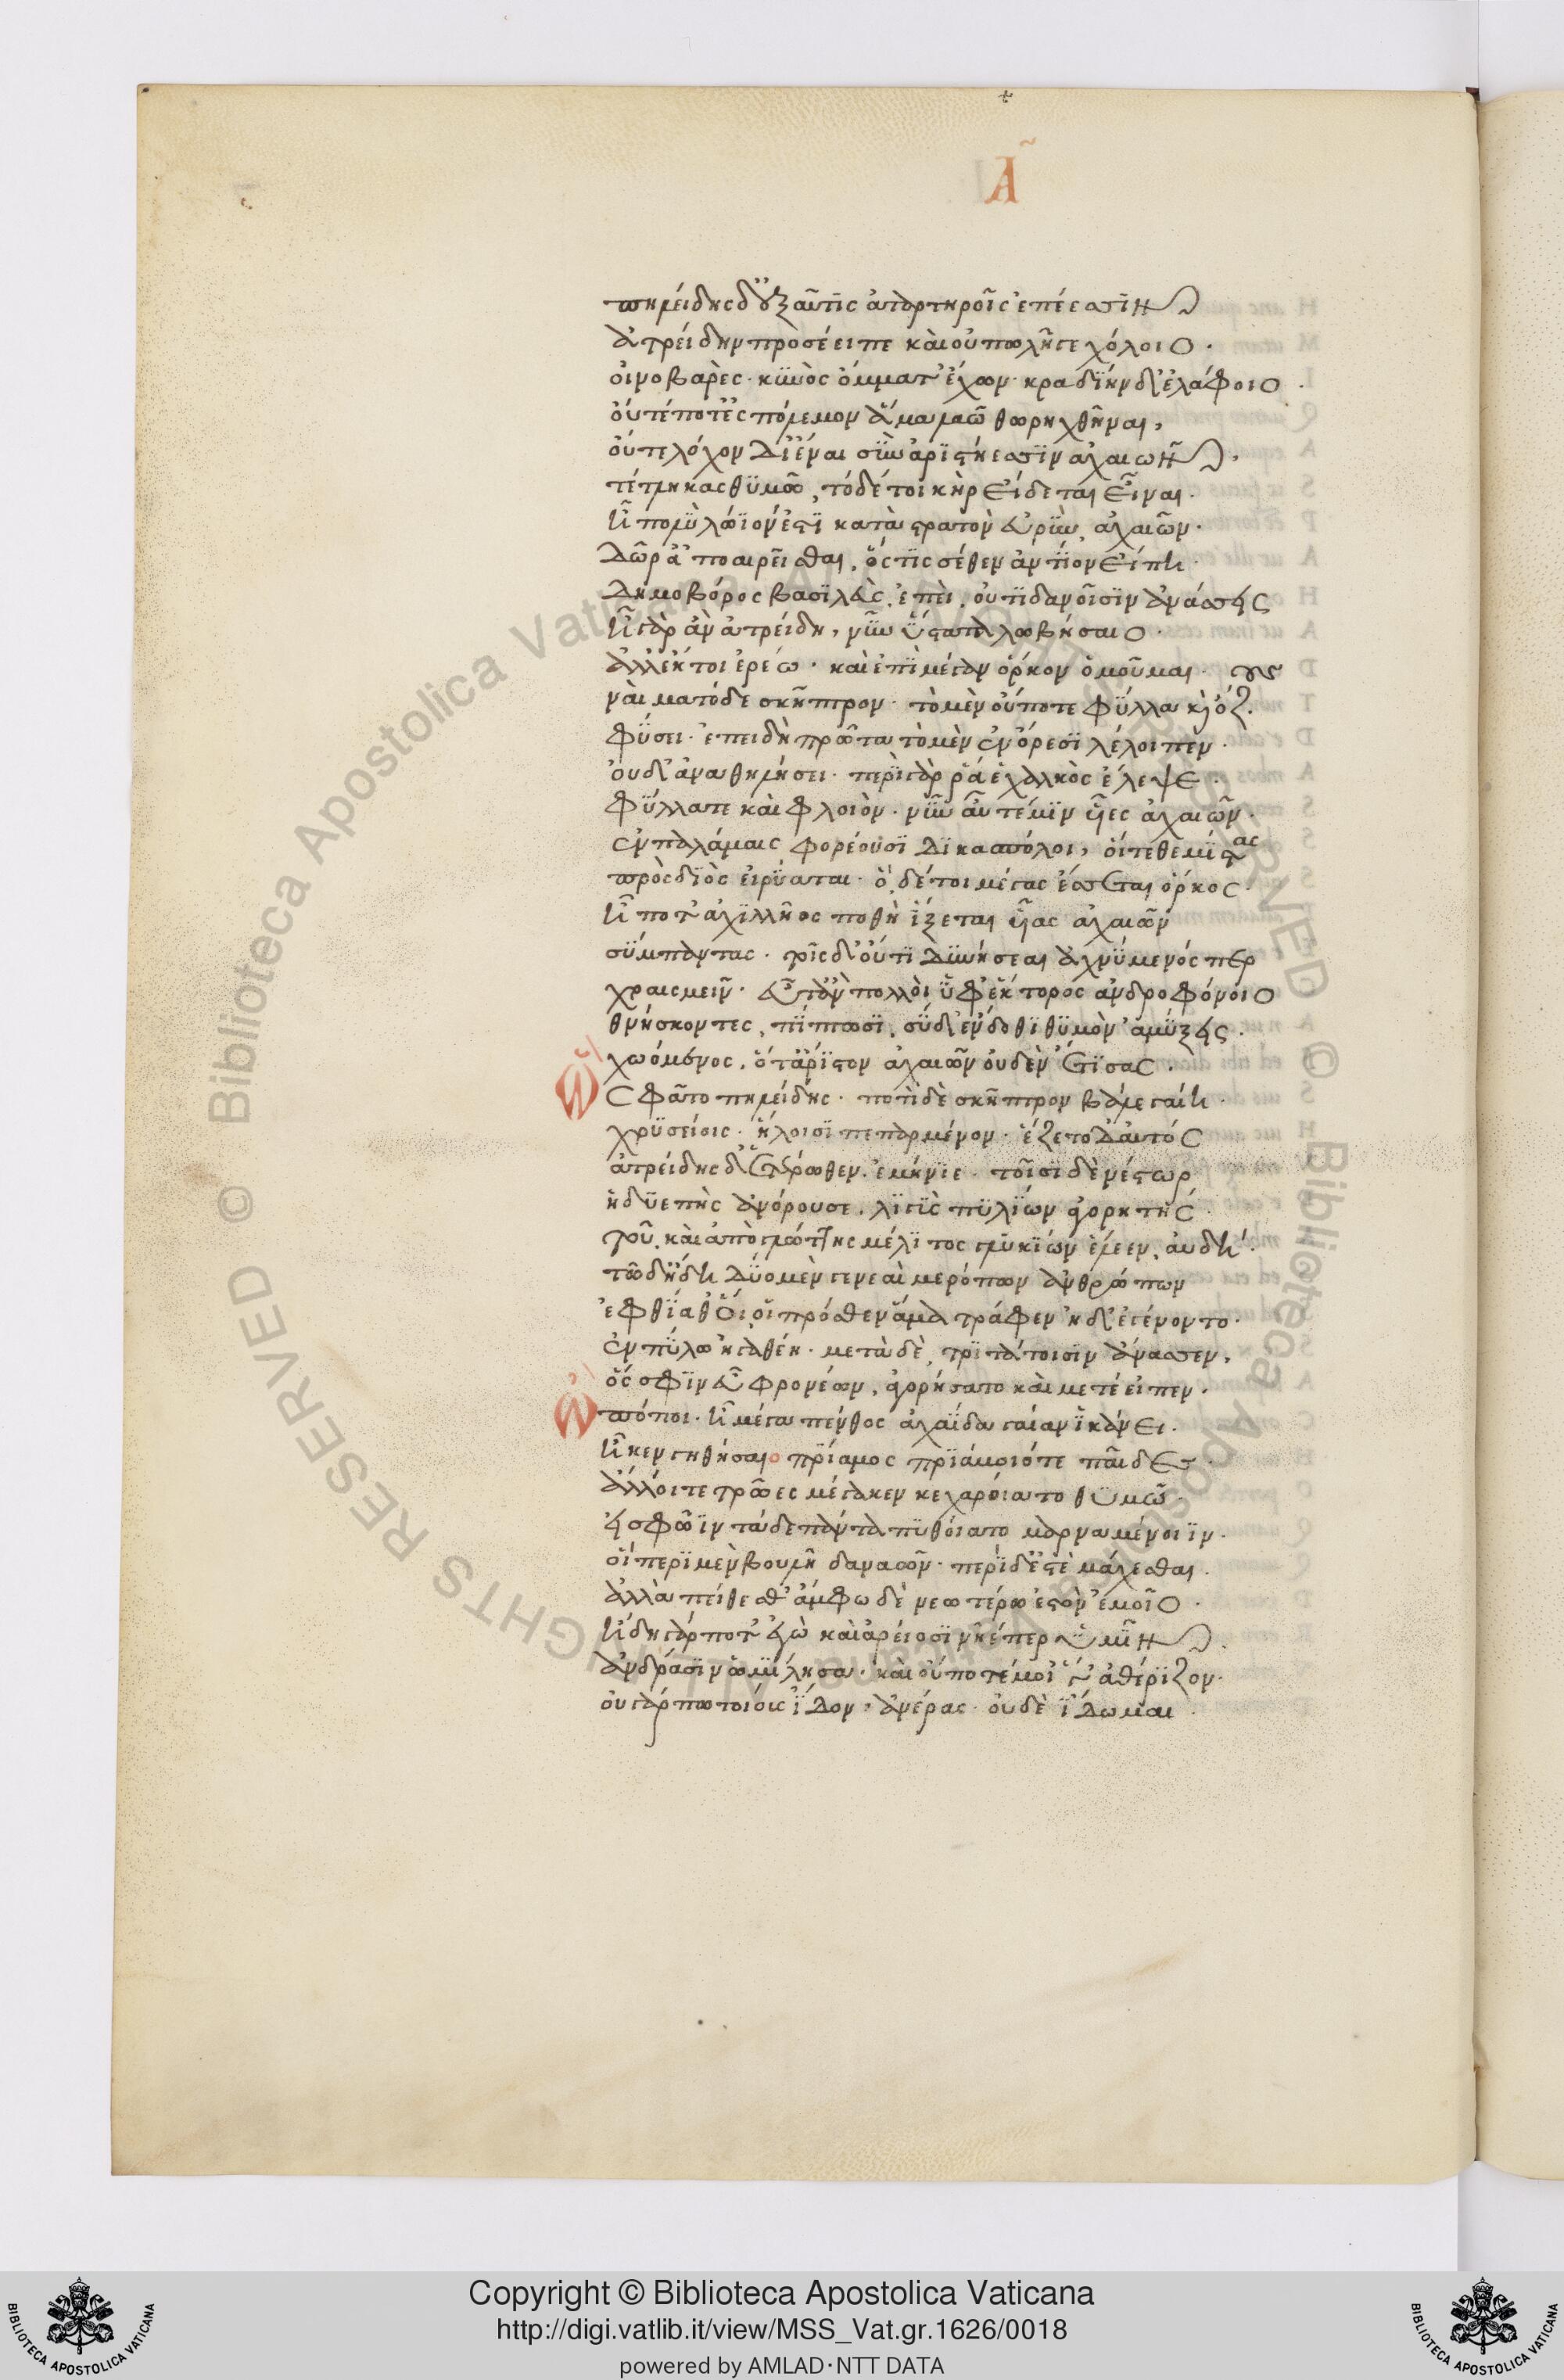 Α
πηλείδης δ' ἐξαῦτις ἀταρτηροῖς ἐπέεσσιν
ἀτρείδην προσέειπε καὶ οὔπω λῆγε χόλοιο.
οἰνοβαρὲς. κϋνὸς ὄμματ' ἔχων. κραδΐην δ' ἐλάφοιο.
οὔτέ ποτ' ἐς πόλεμον ἅμα λαῶ θωρηχθῆναι,
οὔτε λόχον δ' ἰέναι σῢν ἀρϊστήεσσϊν ἀχαιῶν,
τέτληκας θϋμῶ, τόδέ τοι κὴρ εἴδεται εἶναι.
ἦ πολῢ λώϊον ἐστῒ κατὰ στρατὸν εὐρῢν ἀχαιῶν.
δῶρ' ἀποαιρεῖσθαι, ὅς τῒς σέθεν ἀντΐον εἴπη.
δημοβόρος βασϊλεὺς, ἐπεὶ οὐτϊδανοῖσϊν ἀνάσσεις
ἦ γὰρ ἂν ἀτρείδη, νῦν ὕστατα λωβήσαιο.
ἀλλ' ἔκ τοι ἐρέω. καὶ ἐπῒ μέγαν ὅρκον ὀμοῦμαι.
ναὶ μα τόδε σκῆπτρον. τὸ μὲν οὔποτε φΰλλα κὶ ὄζους
φΰσει. ἐπειδὴ πρῶτα τομὴν ἐν ὄρεσϊ λέλοιπεν.
οὐδ' ἀναθηλήσει. περῒ γάρ ῥά ἑ χαλκὸς ἔλεψε.
φΰλλατε καὶ φλοιὸν. νῦν αὖτέ μϊν υἷες ἀχαιῶν.
ἐν παλάμαις φορέουσϊ δϊκασπόλοι, οἵτε θέμϊστας
πρὸς δϊὸς εἰρΰαται. ὁ δέ τοι μέγας ἔσσεται ὅρκος.
ἦ ποτ' ἀχϊλλῆος ποθὴ ἵξεται υἷας ἀχαιῶν
σΰμπαντας. τοῖς δ' οὔτϊ δϋνήσεαι ἀχνΰμενός περ
χραισμεῖν. εὖτ' ἂν πολλοὶ ὑφ' ἕκτορος ἀνδροφόνοιο
θνήσκοντες, πΐπτωσϊ, σῢ δ' ἔνδοθϊ θϋμὸν ἀμΰξεις.
χωόμενος, ὅτ' ἄρϊστον ἀχαιῶν οὐδὲν ἔτϊσας.
Ὣς φᾶτο πηλείδης. ποτὶ δὲ σκῆπτρον βάλε γαίη.
χρϋσείοις. ἥλοισϊ πεπαρμένον. ἕζετο δ' αὐτός
ἀτρείδης δ' ἑτέρωθεν. ἐμήνϊε. τοῖσϊ δὲ νέστωρ
ἡδϋεπὴς ἀνόρουσε. λϊγῒς πϋλΐων ἀγορητής.
τοῦ. καὶ ἀπὸ γλώττης μέλϊτος γλϋκΐων ῥέεεν, αὐδή.
τῶ δ' ἤδη δΰο μὲν γενεαὶ μερόπων ἀνθρώπων
ἐφθΐαθ' οἵ οἱ πρόσθεν ἅμα τράφεν ἠδ' ἐγένοντο.
ἐν πΰλω ἠγαθέη. μετὰ δὲ, τρϊτάτοισϊν ἄνασσεν,
ὅς σφϊν εὖ φρονέων, ἀγορήσατο καὶ μετέειπεν.
Ὢ πόποι. ἦ μέγα πένθος ἀχαΐδα γαίαν ἱκάνει.
ἦ κεν γηθήσαιο πρΐαμος πρϊάμοιό τε παῖδες.
ἄλλοι τε τρῶες μέγα κεν κεχαροίατο θϋμῶ.
εἰ σφῶϊν τάδε πάντα πϋθοίατο μαρναμένοιϊν.
οἳ περῒ μὲν βουλὴν δαναῶν. περῒ δ' ἐστὲ μάχεσθαι.
ἀλλὰ πείθεσθ' ἄμφω δὲ νεωτέρω ἐστὸν ἐμοῖο.
ἤδη γάρ ποτ' ἐγὼ καὶ ἀρείοσϊ νἠέπερ ὑμῖν.
ἀνδράσϊν ὡμΐλησα. καὶ οὔποτέ μοι' γ' ἀθέρϊζον.
οὐ γάρ πω τοίοις ἴδον, ἀνέρας. οὐδὲ ἴδωμαι.
Copyright © Biblioteca Apostolica Vaticana
http://digi.vatlib.it/view/MSS_Vat.gr.1626/0018
powered by AMLAD·NTT DATA